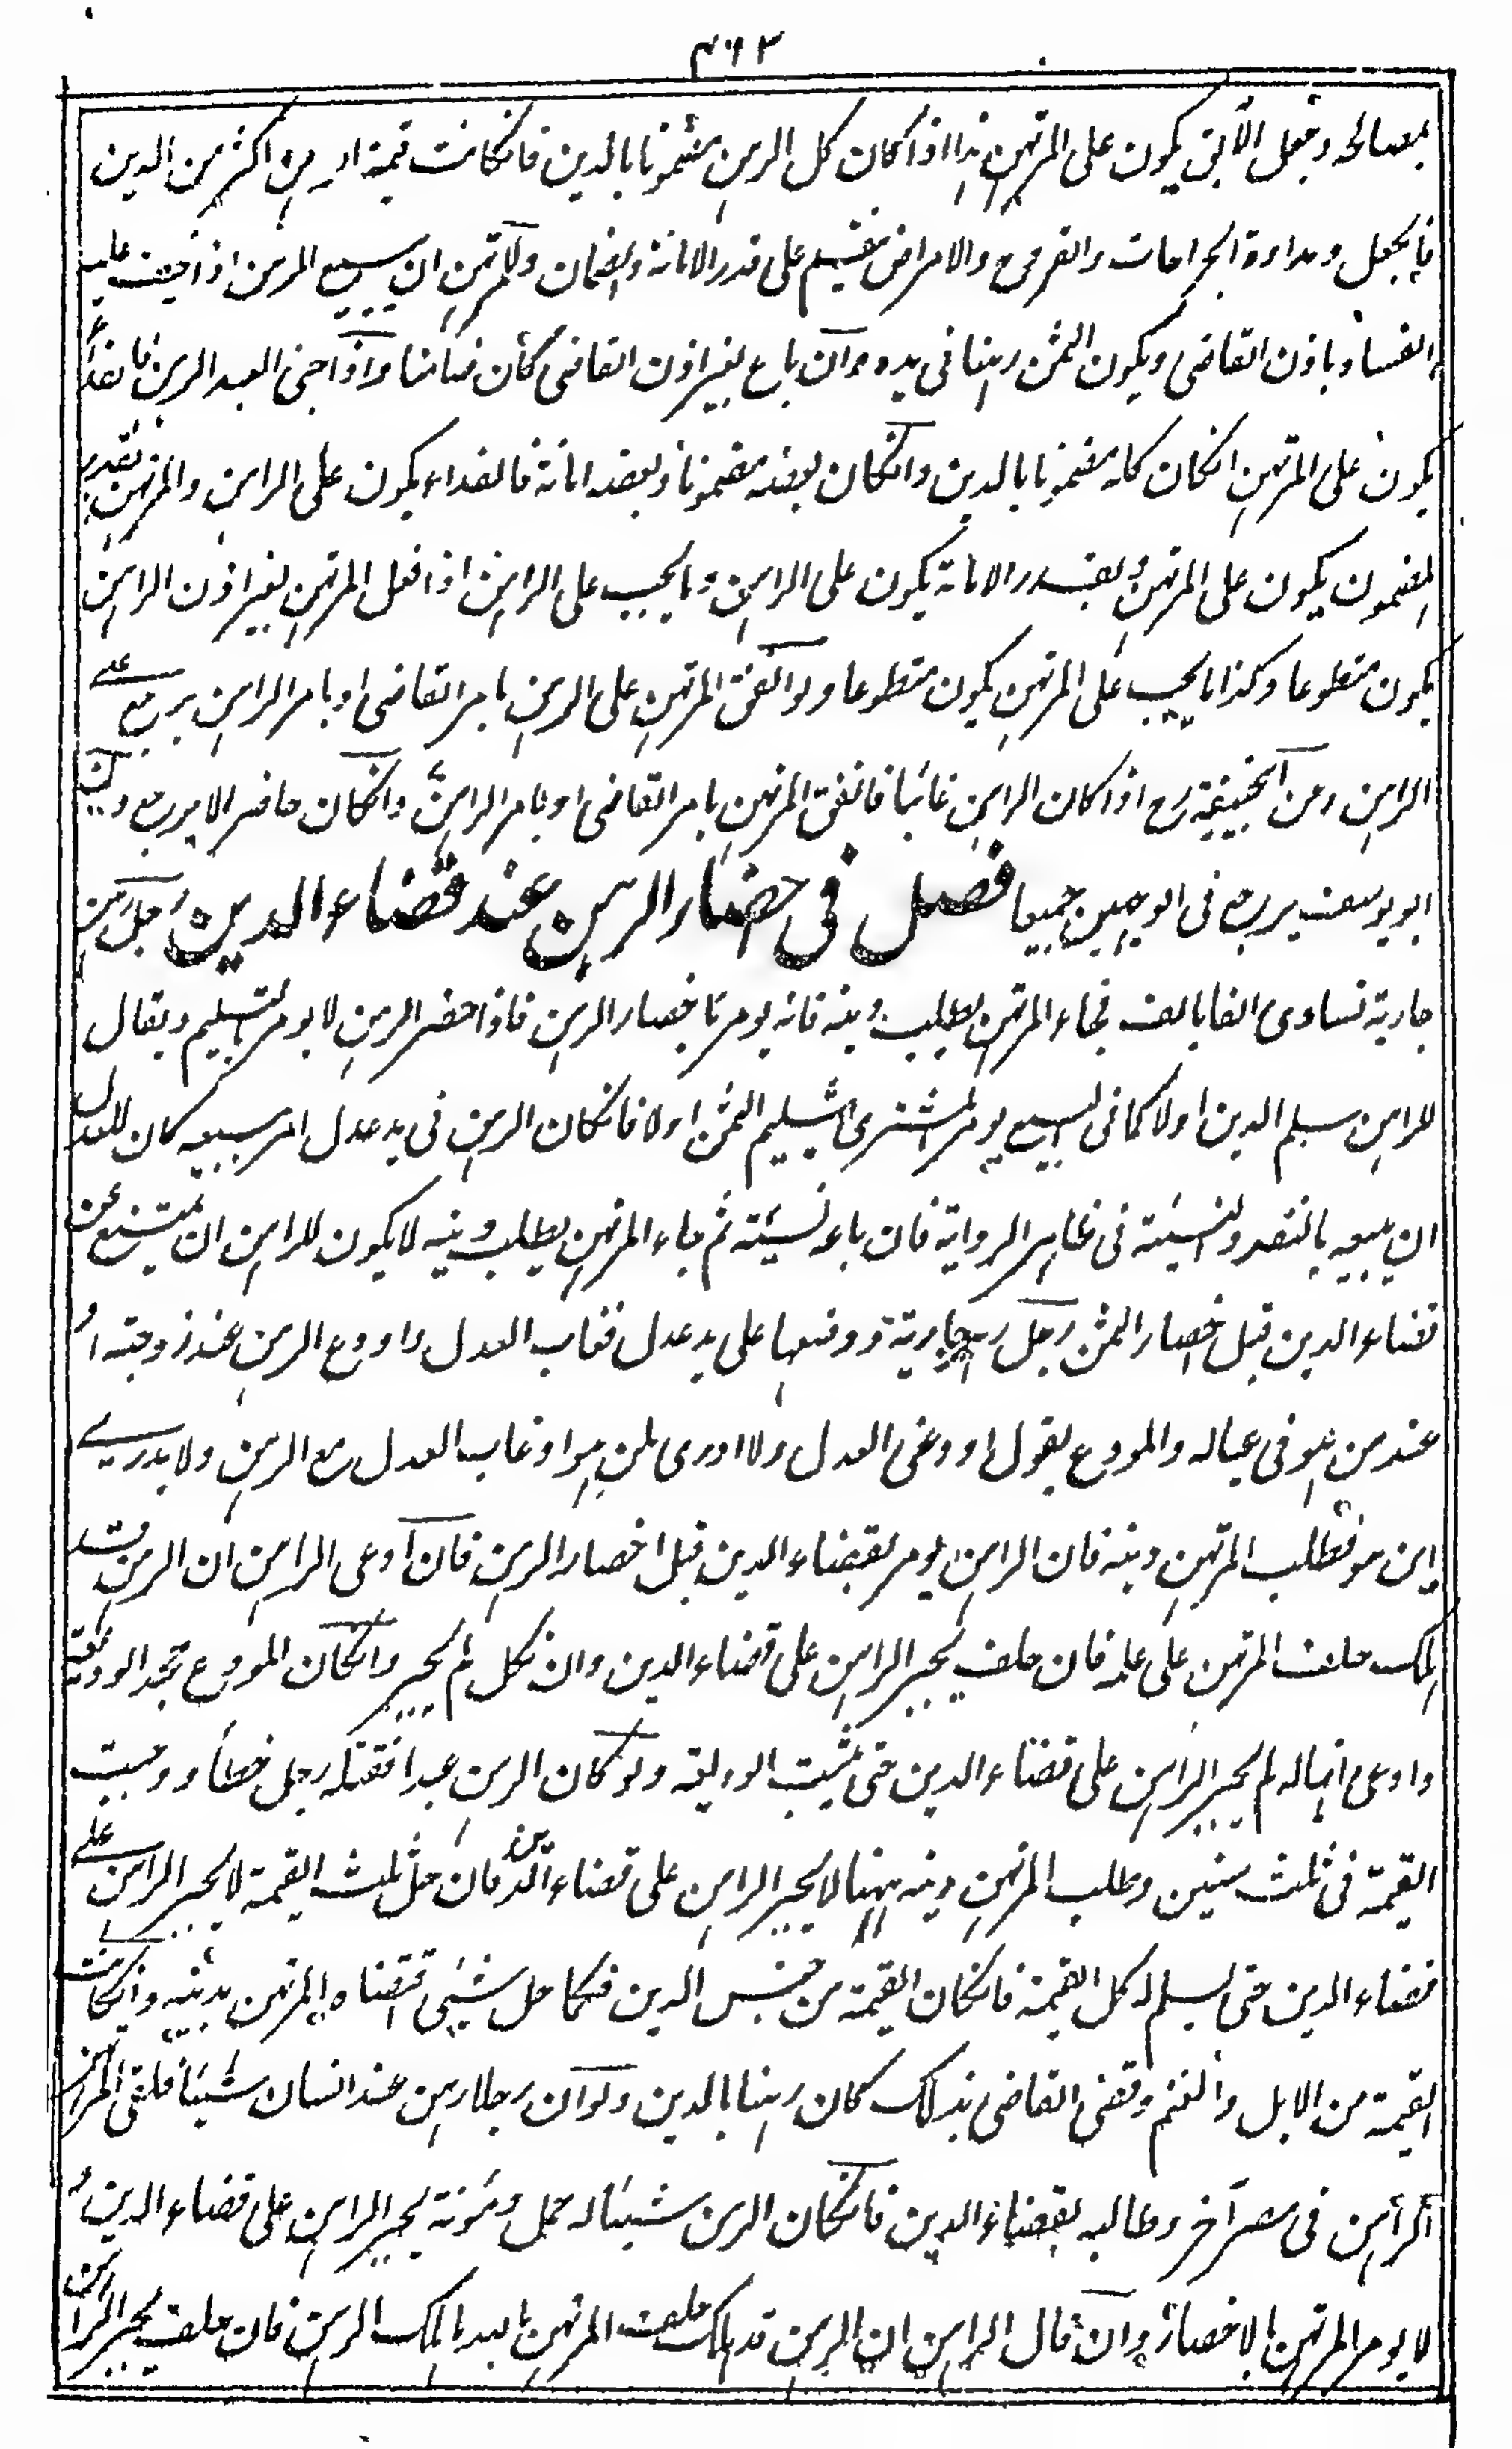 ۴۶۲
بمصالحه وجعل الآبق يكون على المرتهن هذا اذا كان كل الرهن مضمونا بالدين فانكانت قيمة الرهن اكثر من الدين
فالجعل ومداوة الجراحات والقروح والامراض ينقسم على قدر الامانة والضمان وللمرتهن ان يبيع الرهن اذا خيف عليه
الفساد باذن القاضى ويكون الثمن رهنا فى يده وان باع بغير اذن القاضى كان ضامنا واذا جنى العبد الرهن فالفداء
يكون على المرتهن انكان كله مضمونا بالدين وانكان بعضه مضمونا وبعضه امانة فالفداء يكون على الراهن والمرتهن بقدر
المضمون يكون على المرتهن وبقدر الامانة يكون على الراهن وما يجب على الراهن اذا فعل المرتهن بغير اذن الراهن
يكون متطوعا وكذا ما يجب على المرتهن يكون متطوعا ولو انفق المرتهن على الرهن بامر القاضى او بامر الراهن يرجع على
الراهن وعن ابيحنيفة رح اذا كان الراهن غائبا فانفق المرتهن بامر القاضى او بامر الراهن وانكان حاضرا لا يرجع وعن
ابو يوسف يرجع فى الوجهين جميعا فصل فى احضار الرهن عند قضاء الدين رجل رهن
جارية تساوى الفا بالف فجاء المرتهن يطلب دينه فانه يومر باحضار الرهن فاذا احضر الرهن لا يومر بالتسليم ويقال
للراهن سلم الدين اولا كما فى البيع يومر المشترى بتسليم الثمن اولا فانكان الرهن فى يد عدل امر ببيعه كان للعدل
ان يبيعه بالنقد والنسيئة فى ظاهر الرواية فان باع نسيئة ثم جاء المرتهن يطلب دينه لا يكون للراهن ان يمتنع عن
قضاء الدين قبل احضار الثمن رجل رهن جارية ووضعها على يد عدل فغاب العدل واودع الرهن عند زوجته او
عند من هو فى عياله والمودع يقول اودعنى العدل ولا ادرى لمن هو او غاب العدل مع الرهن ولا يدرى
اين هو فطلب المرتهن دينه فان الراهن يومر بقضاء الدين قبل احضار الرهن فان ادعى الراهن ان الرهن قد
هلك حلف المرتهن على علمه فان حلف يجبر الراهن على قضاء الدين وان نكل لم يجبر وانكان المودع جحد الوديعة
وادعى انها له لم يجبر الراهن على قضاء الدين حتى يثبت الوديعة ولو كان الرهن عبدا فقتله رجل خطأ ووجبت
القيمة فى ثلث سنين وطلب المرتهن دينه ههنا لا يجبر الراهن على قضاء الدين فان حل ثلث القيمة لا يجبر الراهن على
قضاء الدين حتى يسلم له كل القيمة فانكان القيمة من جنس الدين فكما حل شيئ اقتضاه المرتهن بدينه وانكانت
القيمة من الابل والغنم وقضى القاضى بذلك كان رهنا بالدين ولو ان رجلا رهن عند انسان شيئا فلقى المرتهن
الراهن فى مصر آخر وطالبه بقضاء الدين فانكان الرهن شيئا له حمل ومئونة يجبر الراهن على قضاء الدين و
لا يومر المرتهن بالاحضار وان قال الراهن ان الرهن قد هلك حلف المرتهن بالله ما هلك الرهن فان حلف يجبر الراهن